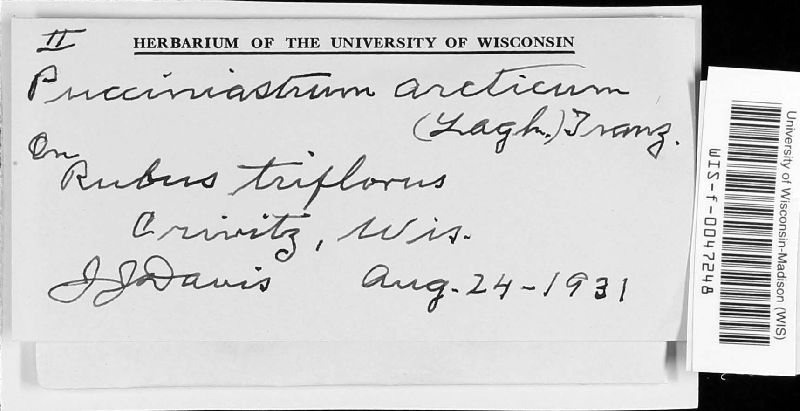 II
HERBARIUM OF THE UNIVERSITY OF WISCONSIN
Pucciniastrum arcticum
(Lagh.) Tranz.
On
Rubus triflorus
Crivitz, Wis.
J J Davis Aug. 24-1931
University of Wisconsin-Madison (WIS)
WIS-f-0047248